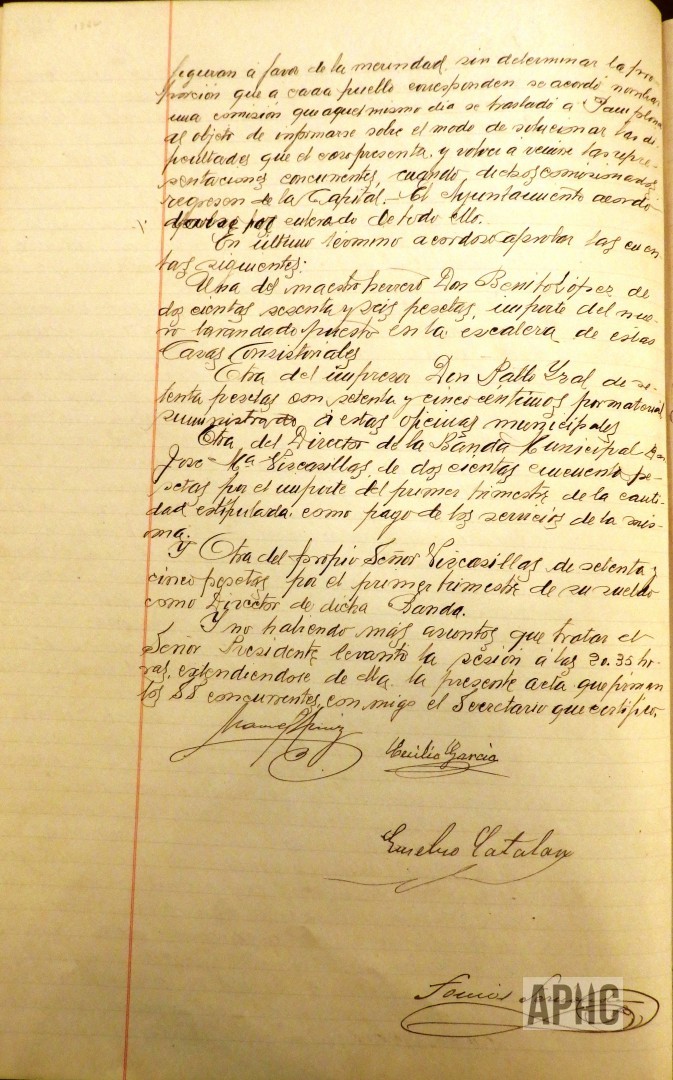 figuran a favor de la merindad, sin determinar la pro-
porción que a cada pueblo corresponden se acordó nombrar
una comisión que aquel mismo día se trasladó a Pamplona
al objeto de informarse sobre el modo de solucionar las di-
ficultades que el caso presenta, y volver a reunirse las repre-
sentaciones concurrentes, cuando dichos comisionados,
regresen de la Capital. El Ayuntamiento acordó
darse por enterado de todo ello.
En último término acordose aprobar las cuen-
tas siguientes:
Una del maestro herrero Don Benito López de
dos cientas sesenta y seis pesetas, importe del nue-
vo barandado puesto en la escalera de estas
Casas Consistoriales
Otra del impresor Don Pablo de se-
tenta pesetas con setenta y cinco céntimos por material
suministrado a estas oficinas municipales
Otra del Director de la Banda Municipal Don
José Mª Viscasillas, de dos cientas cincuenta pe-
setas por el importe del primer trimestre de la canti-
dad estipulada, como pago de los servicios de la mis-
ma.
Y Otra del propio Señor Viscasillas, de setenta y
cinco pesetas por el primer trimestre de su sueldo
como Director de dicha Banda.
Y no habiendo más asuntos que tratar el
Señor Presidente levantó la sesión á las 20.35 ho-
ras, extendiéndose de ella la presente acta que firman
los SS concurrentes, con migo el Secretario que certifico.
Cecilio García
Eusebio Catalan
APHC